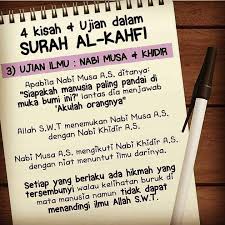 4 kisah & Ujian dalam
SURAH AL-KAHFI
3) UJIAN ILMU : NABI MUSA & KHIDIR
Apabila Nabi Musa A.S. ditanya:
"Siapakah manusia paling pandai di
muka bumi ini?" lantas dia menjawab
"Akulah orangnya"
Allah S.W.T menemukan Nabi Musa A.S.
dengan Nabi Khidir A.S.
Nabi Musa A.S. mengikuti Nabi Khidir A.S.
dengan niat menuntut ilmu darinya.
Setiap yang berlaku ada hikmah yang
tersembunyi walau kelihatan buruk di
mata manusia namun tidak dapat
menandingi ilmu Allah S.W.T.